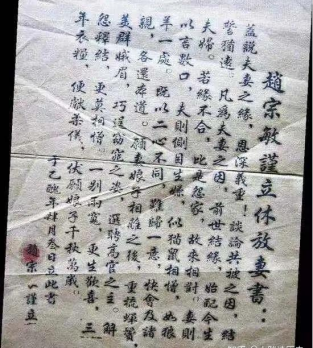 趙宗敏謹立休放妻書：
蓋説夫妻之緣，恩深義重！談論共被之因，結
誓猶遠 凡為夫妻之因 前世結緣，始配今生
夫婦。若緣不合，比是怨家，故來相對：妻則
以言數口，夫則側目生嫌，似猫鼠相憎，如狼
羊一處。既以二心不同，難歸一意，快會及諸
親，各還本道。願妻娘子相離之後，重梳蟬鬢
美群娥眉，巧逞窈窕之姿，選聘高官之主。解
怨釋結，更莫相憎。一別兩寬，更生歡喜，三
年衣糧，便獻柔儀。伏願娘子千秋萬歲。
于乙酉年肆月叁日立此書
趙宗 謹立